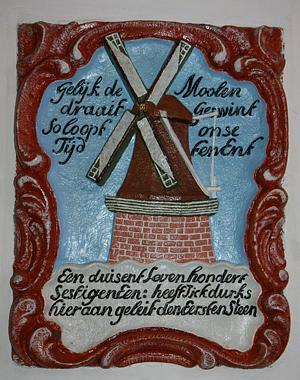 Gelijk de Moolen
draait Gewint
So loopt onse
Tijd ten Ent
Een duisent Seven hondert
Sestig en Een: heeft Dirk durks
hier aan geleit den Eersten Steen